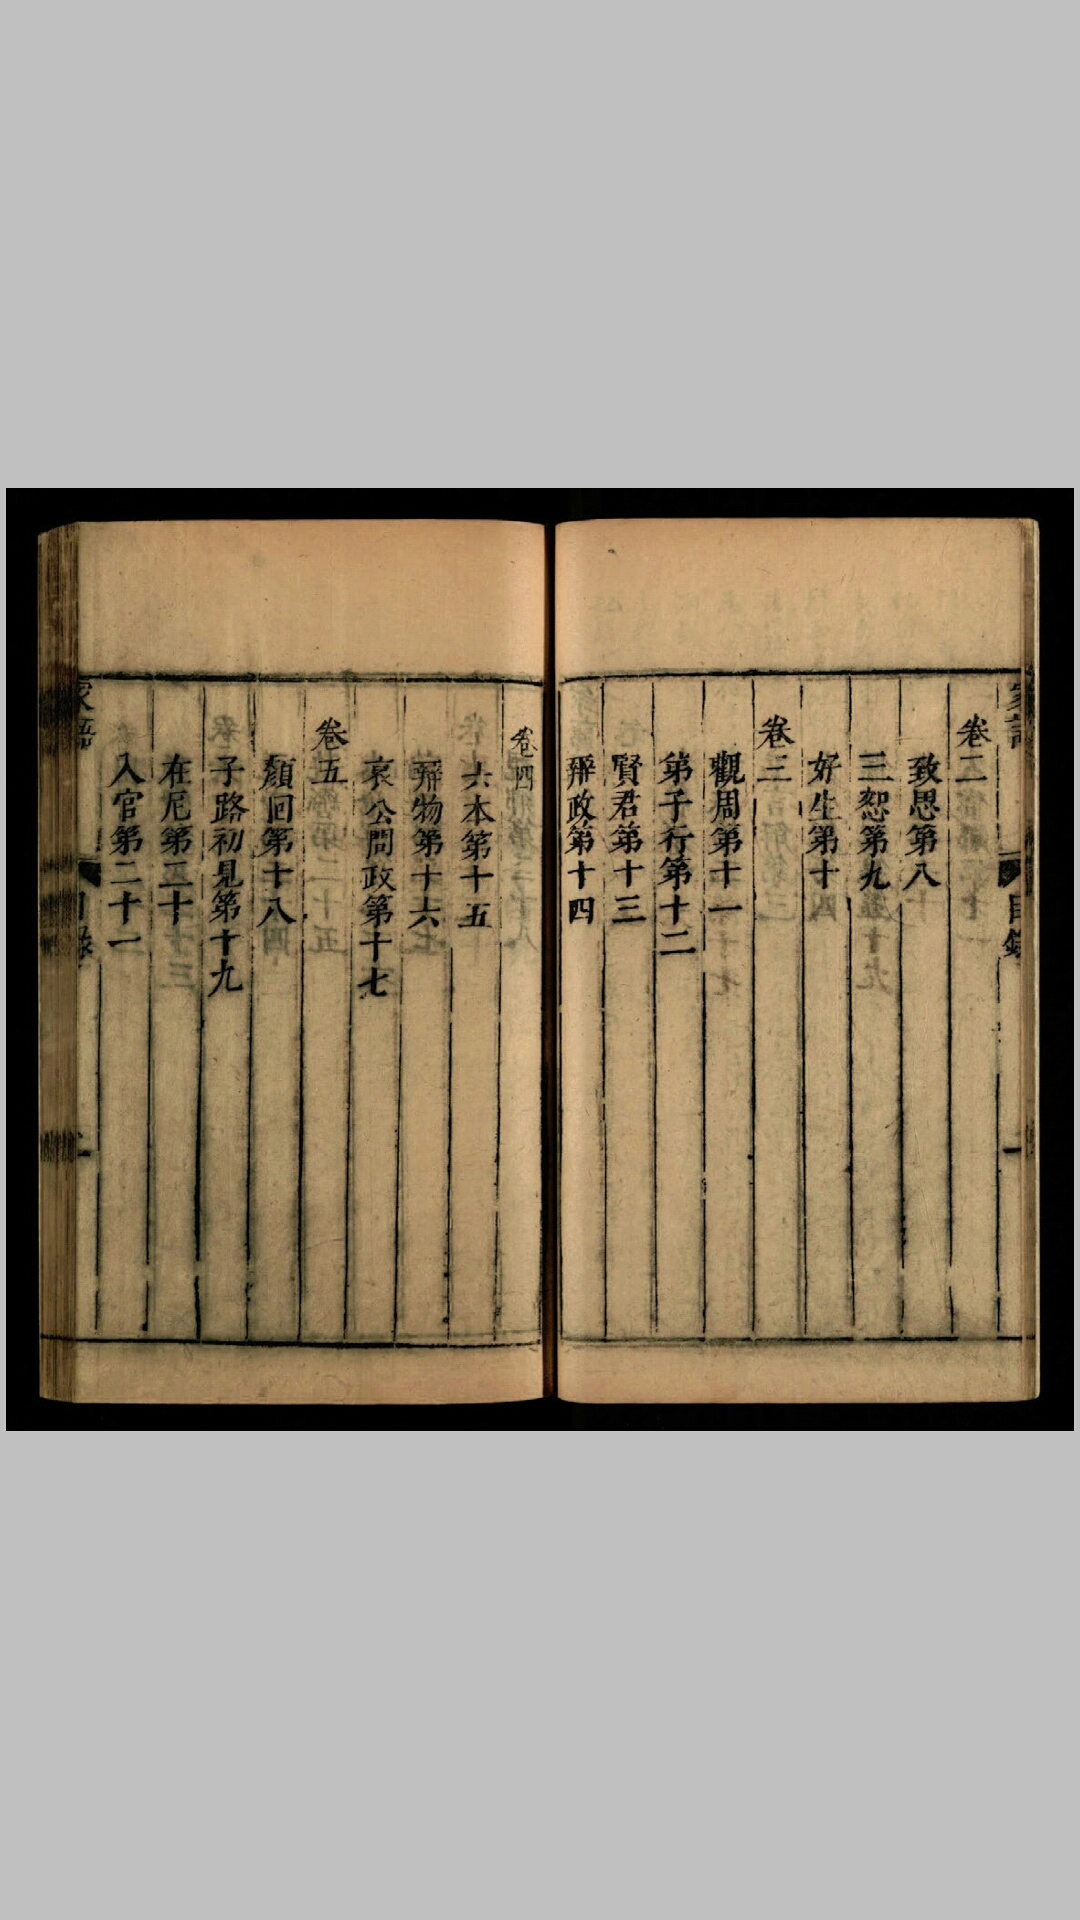 卷二
致思第八
三恕第九
好生第十
卷三
觀周第十一
第子行第十二
賢君第十三
辯政第十四
卷四
六本第十五
辯物第十六
哀公問政第十七
卷五
顏回第十八
子路初見第十九
在厄第二十
入官第二十一
家語
目錄